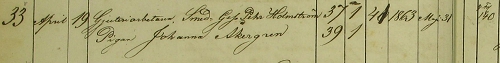 33 April 19 Gjuteriarbetaren, Smed. Ges. Pehr Holmström 37 1 41 1863 Maj 31 140
Pigan Johanna Åkergren 39 1